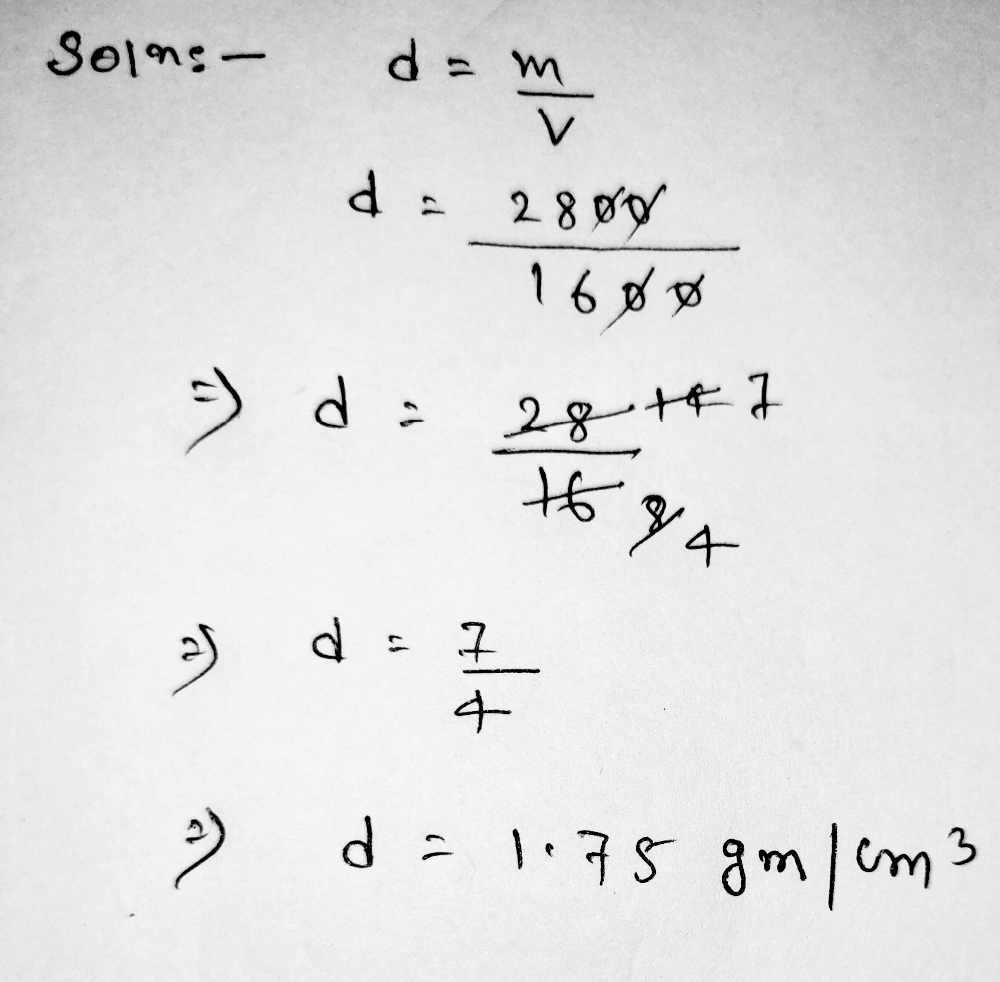 Soln:- d = m/v
d = 2800/1600
=> d = 28/16 14 7 8 4
=> d = 7/4
=> d = 1.75 gm/cm³